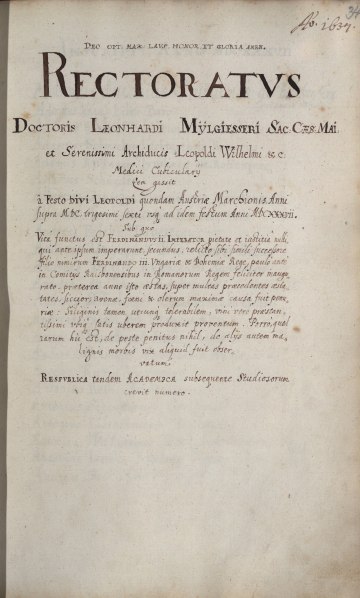 Ao. 1637.
34
DEO OPT. MAX. LAUS, HONOR ET GLORIA AMEN.
RECTORATVS
DOCTORIS LEONHARDI MŸLGIESSERI SAC. CÆS. MAI.
et Serenissimi Archiducis Leopoldi Wilhelmi &c.
Medici Cubicularij
Quem gessit
à Festo DIVI LEOPOLDI quondam Austriæ Marchionis Anni
supra M.DC. trigesimi sexti usq ad idem festum Anni MDCXXXVII.
Sub quo
Vita functus est FERDINANDUS II. IMPERATOR pietate et iustitia nulli,
qui ante ipsum imperarunt, secundus, relicto sibi simili successore
filio nimirum FERDINANDO III. Vngariæ & Bohemiæ Rege, paulò antè
in Comitijs Ratisbonensibus in Romanorum Regem feliciter inaugu
rato. præterea anno isto æstas, super multas præcedentes æsta,
tates, siccior, avenæ, foeni & olerum maximæ causa fuit penu,
riæ: Siliginis tamen utcunq tolerabilem, vini verò præstan,
tissimi ubiq satis uberem produxit proventum. Porrò, quod
rarum hic est, de peste penitus nihil, de alijs autem ma,
lignis morbis vix aliquid fuit obser,
vatum.
RESPUBLICA tandem ACADEMICA subsequente Studiosorum
crevit numero.